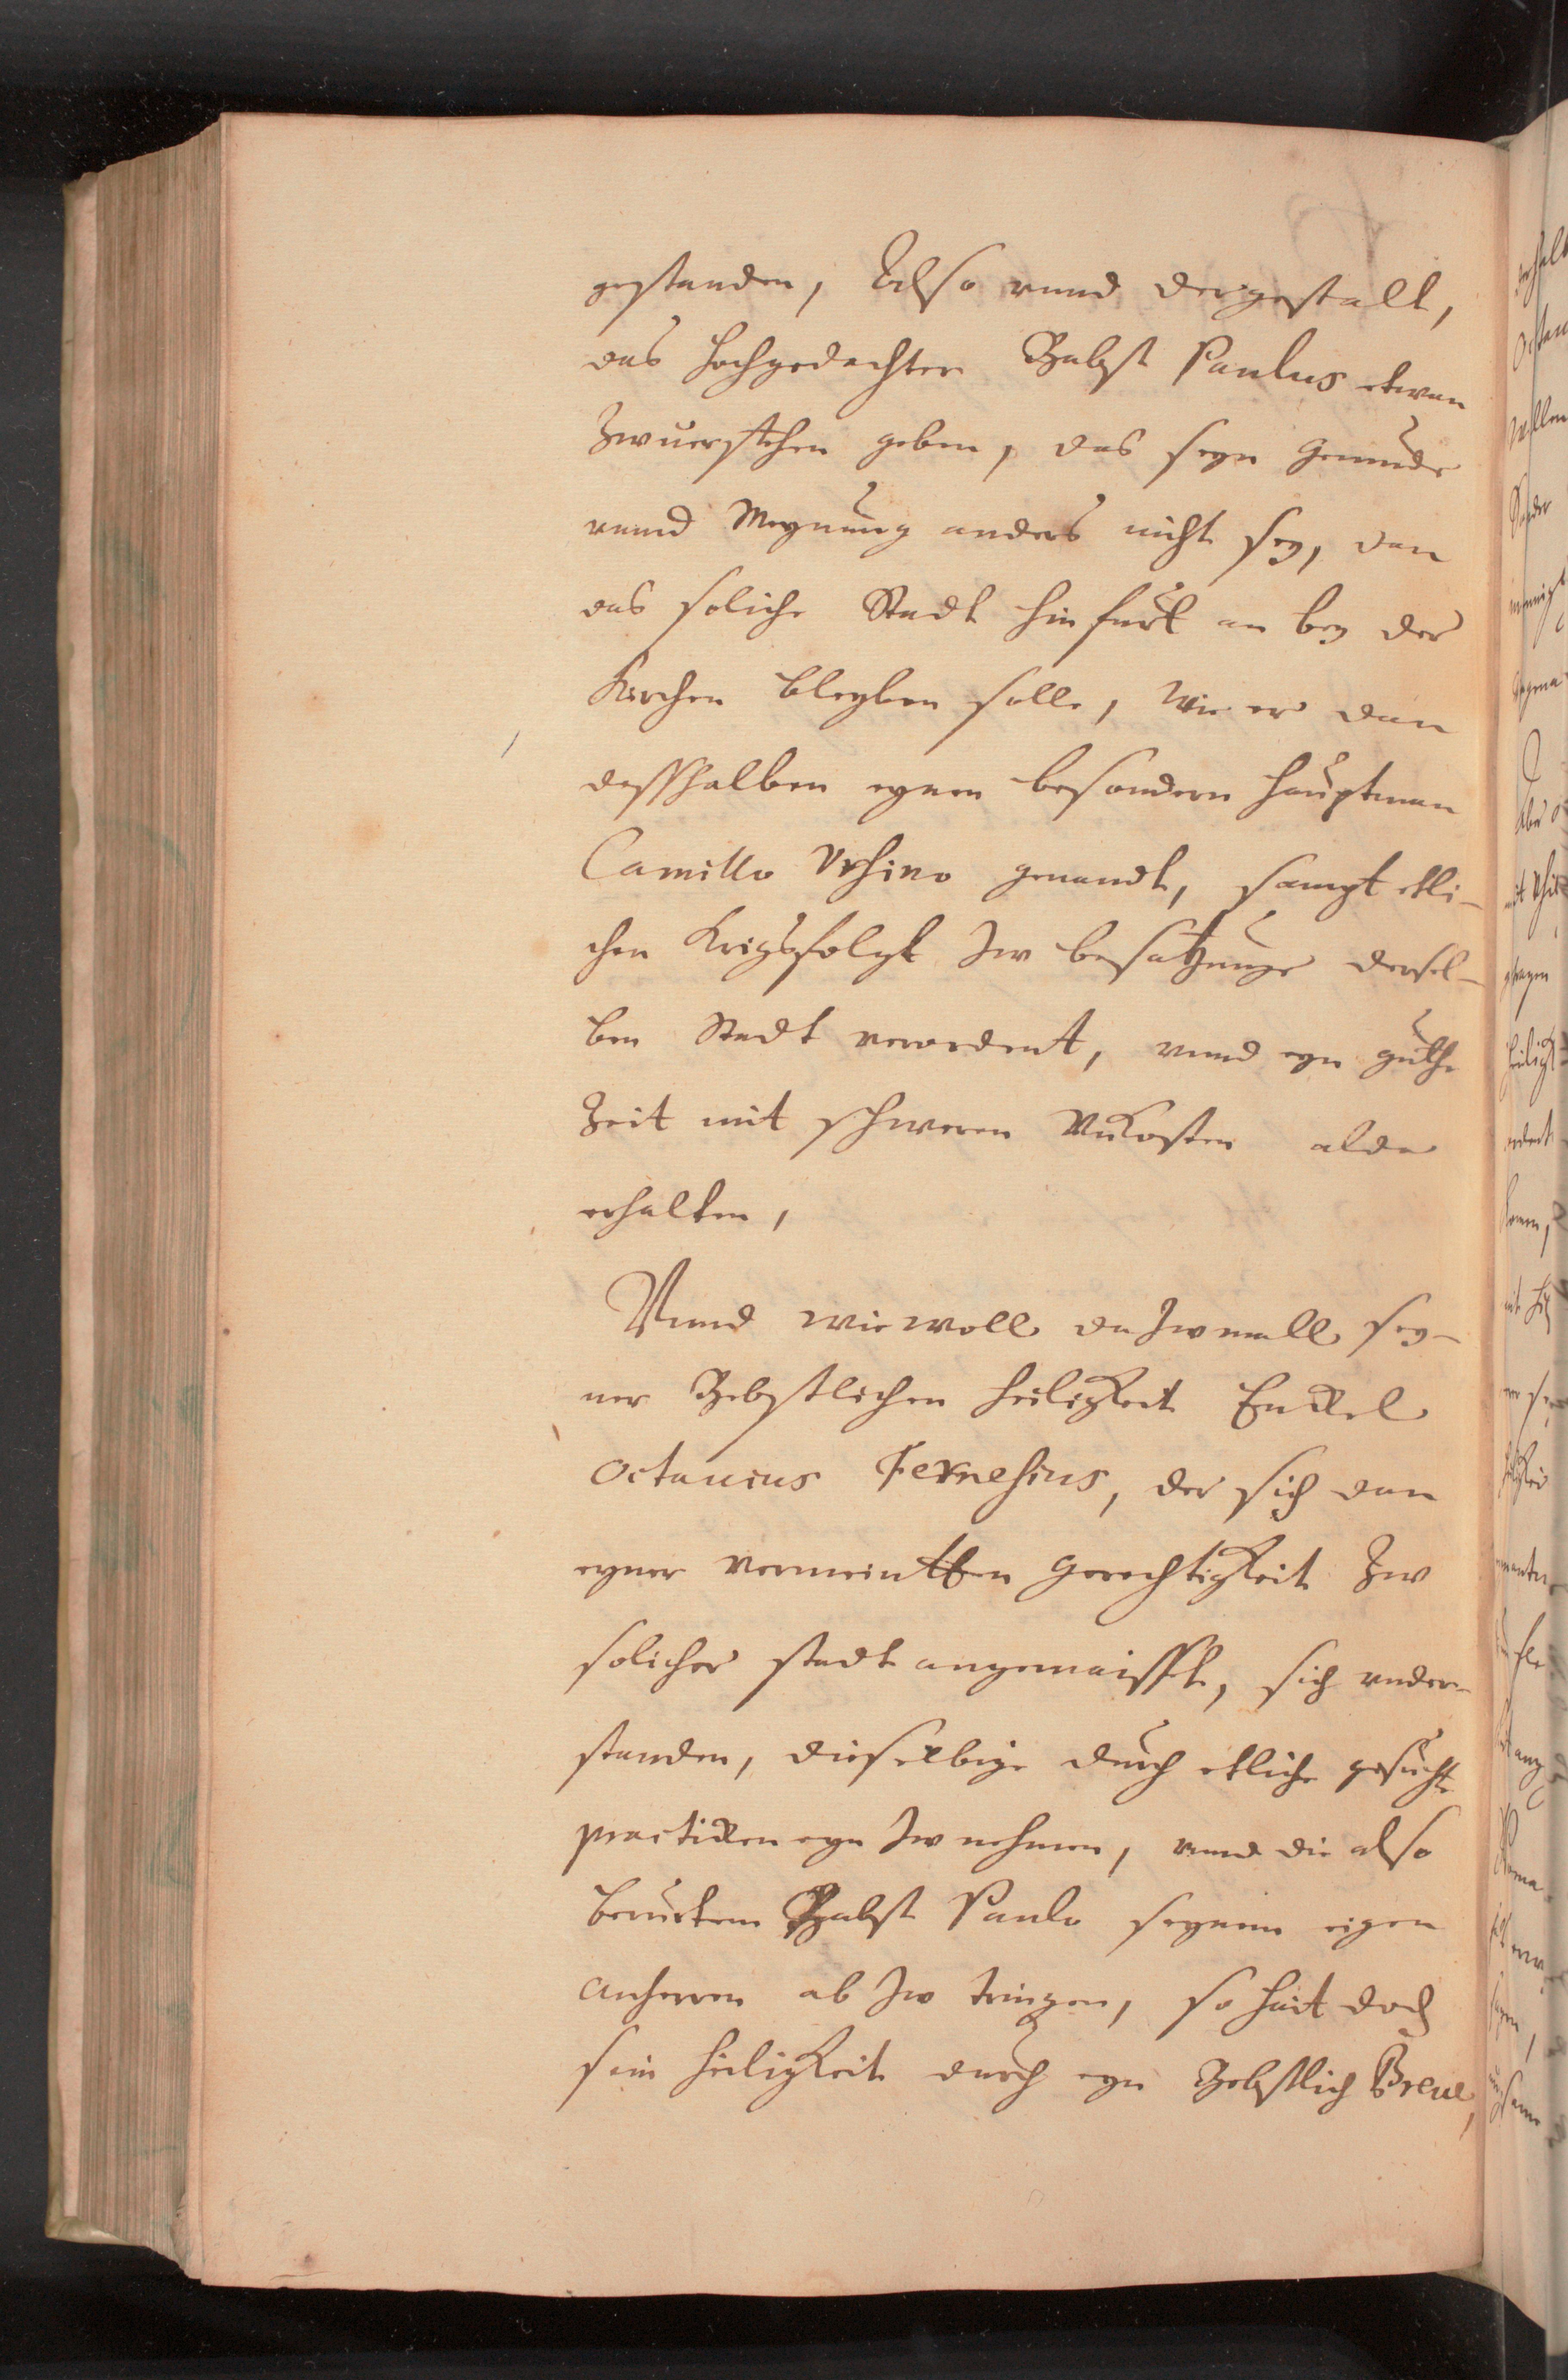 gestanden, Also vnnd dergestallt,
das hochgedachter Babst Paulus etwan
Zwuerstehen geben, das seyn gemude
vnnd Meynung anders nicht sey, dan
das soliche Stadt hinfurt an bey der
Kirchen bleyben solle, Wie er dan
deßhalben eynen besondern Hauptman
Camillo Vrsino genandt, sampt etli-
chen Krigsfolgk Zw besatzunge dersel-
ben Stadt verordent, vnnd eyn guthe
Zeit mit schweren Vnkosten alda
erhalten,
Vnnd wiewoll da Zwmall sey-
ner Bebstlichen Heiligkeit Enckel
Octauius Fernesius, der sich dan
eyner vermeintten gerechtigkeit Zw
solicher stadt angemaisset, sich vnder-
standen, dieselbige durch etliche gesuchte
practicken eyn Zw nehmen, vnnd die also
berurtem Babst Paulo seynem eigen
Anherren ab Zw tringen, so hait doch
sein Heiligkeit durch eyn Bebstlich Breue,